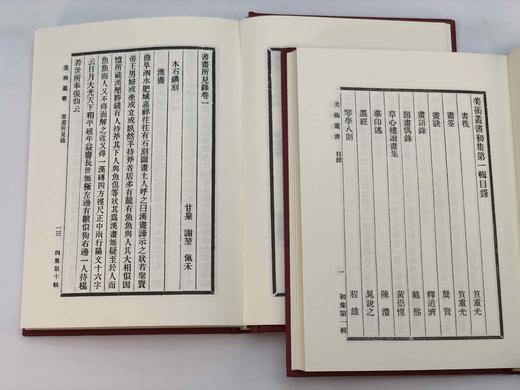 書畫所見錄卷一
甘泉 謝堃 佩禾
木石鐫刻
漢畫
曲阜泗水肥城嘉祥往往有石刻圖畫土人呼之曰漢畫諦示之狀若聖賢
帝王男婦或坐或立或臥然手持斧者居多有龍有魚魚與人其大相似因
憶所藏漢壓勝錢有人持斧其下人與魚俱等狀其爲漢畫無疑至於人而
魚魚而人又不得而解之近又得一漢磚四方徑尺正中兩行陽文十六字
云日月大光天下和平延年益壽長世無極左邊有獸似狗右邊一人持楊
若世所奉張仙云
美術叢書
書畫所見錄
一三
四集第十輯
美術叢書初集第一輯目錄
書筏 笪重光
畫筌 笪重光
畫訣 龔賢
畫語錄 釋道濟
題畫偶錄 戴熙
草心樓讀畫集 黃崇惺
摹印述 陳澧
墨經 晁說之
琴學八則 程雄
美術叢書
目錄
一
初集第一輯